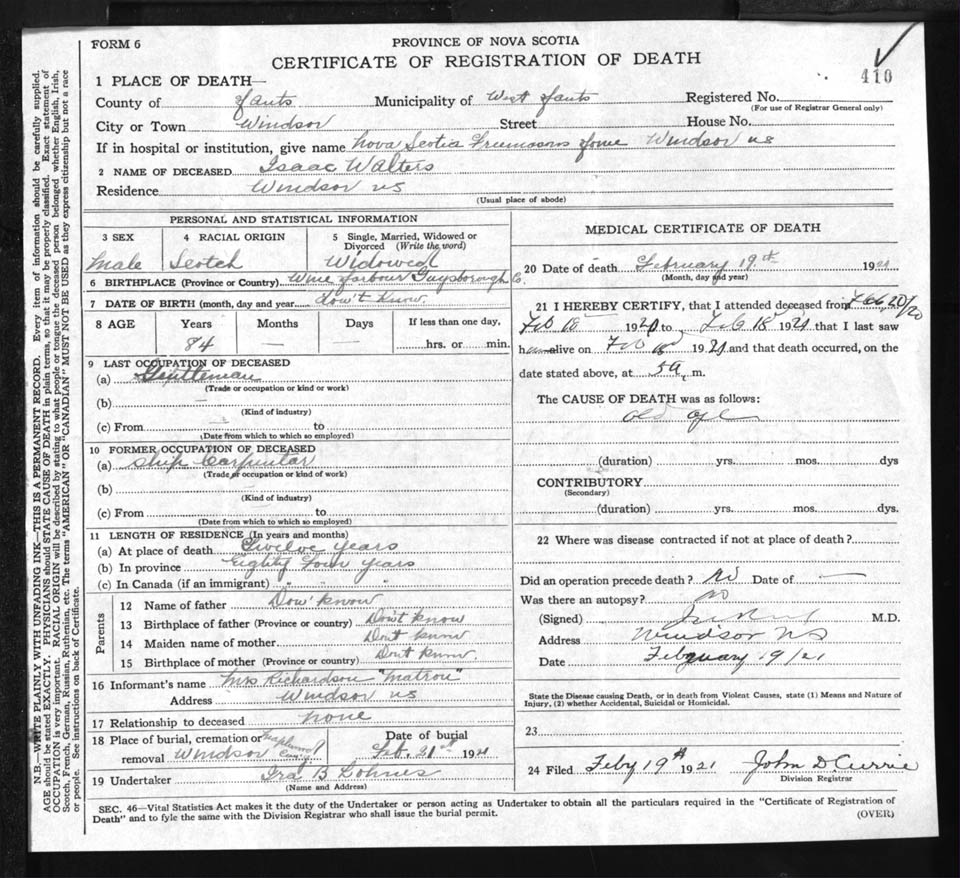 FORM 6
PROVINCE OF NOVA SCOTIA
CERTIFICATE OF REGISTRATION OF DEATH
410
1 PLACE OF DEATH—
County of Hants Municipality of West Hants Registered No.
(For use of Registrar General only)
City or Town Windsor Street House No.
If in hospital or institution, give name Nova Scotia Freemasons Home Windsor NS
2 NAME OF DECEASED Isaac Walters
Residence Windsor NS
(Usual place of abode)
PERSONAL AND STATISTICAL INFORMATION
3 SEX 4 RACIAL ORIGIN 5 Single, Married, Widowed or
Divorced (Write the word)
Male Scotch Widowed
6 BIRTHPLACE (Province or Country) Wine Harbour Guysborough Co
7 DATE OF BIRTH (month, day and year) don't know
8 AGE Years Months Days If less than one day,
84 — — hrs. or min.
9 LAST OCCUPATION OF DECEASED
(a) Gentleman
(Trade or occupation or kind or work)
(b) —
(Kind of industry)
(c) From to
(Date from which to which so employed)
10 FORMER OCCUPATION OF DECEASED
(a) Ship Carpentar
(Trade or occupation or kind of work)
(b) —
(Kind of industry)
(c) From to
(Date from which to which so employed)
11 LENGTH OF RESIDENCE (In years and months)
(a) At place of death Twelve years
(b) In province Eighty Four years
(c) In Canada (if an immigrant) " " "
Parents
12 Name of father Don' know
13 Birthplace of father (Province or country) Don't know
14 Maiden name of mother Don't know
15 Birthplace of mother (Province or country) Don't know.
16 Informant's name Mrs Richardson "Matron"
Address Windsor NS
17 Relationship to deceased none
18 Place of burial, cremation or Maplewood Date of burial
removal Windsor Feb. 21st 1921
19 Undertaker Ira B Lohnes
(Name and Address)
MEDICAL CERTIFICATE OF DEATH
20 Date of death February 19th 1921
(Month, day and year)
21 I HEREBY CERTIFY, that I attended deceased from Feb, 20/20
Feb 18 1921 to Feb 18 1921 that I last saw
h alive on Feb 18 1921 and that death occurred, on the
date stated above, at 5 a, m.
The CAUSE OF DEATH was as follows:
old age
(duration) yrs. mos. dys
CONTRIBUTORY
(Secondary)
(duration) yrs. mos. dys.
22 Where was disease contracted if not at place of death?
Did an operation precede death? No Date of —
Was there an autopsy? no
(Signed) M.D.
Address Windsor NS
Date February 19/21
State the Disease causing Death, or in death from Violent Causes, state (1) Means and Nature of
Injury, (2) whether Accidental, Suicidal or Homicidal.
23
24 Filed Feby 19th 1921 John D. Currie
Division Registrar
SEC. 46—Vital Statistics Act makes it the duty of the Undertaker or person acting as Undertaker to obtain all the particulars required in the "Certificate of Registration of
Death" and to fyle the same with the Division Registrar who shall issue the burial permit.
(OVER)
N.B.—WRITE PLAINLY WITH UNFADING INK—THIS IS A PERMANENT RECORD. Every item of information should be carefully supplied.
AGE should be stated EXACTLY. PHYSICIANS should STATE CAUSE OF DEATH in plain terms, so that it may be properly classified. Exact statement of
OCCUPATION is very important. RACIAL ORIGIN will be described by stating to what people or tongue the deceased person belonged whether English, Irish,
Scotch, French, German, Russian, Ruthenian, etc. The terms "AMERICAN" OR "CANADIAN" MUST NOT BE USED as they express citizenship but not a race
or people. See instructions on back of Certificate.